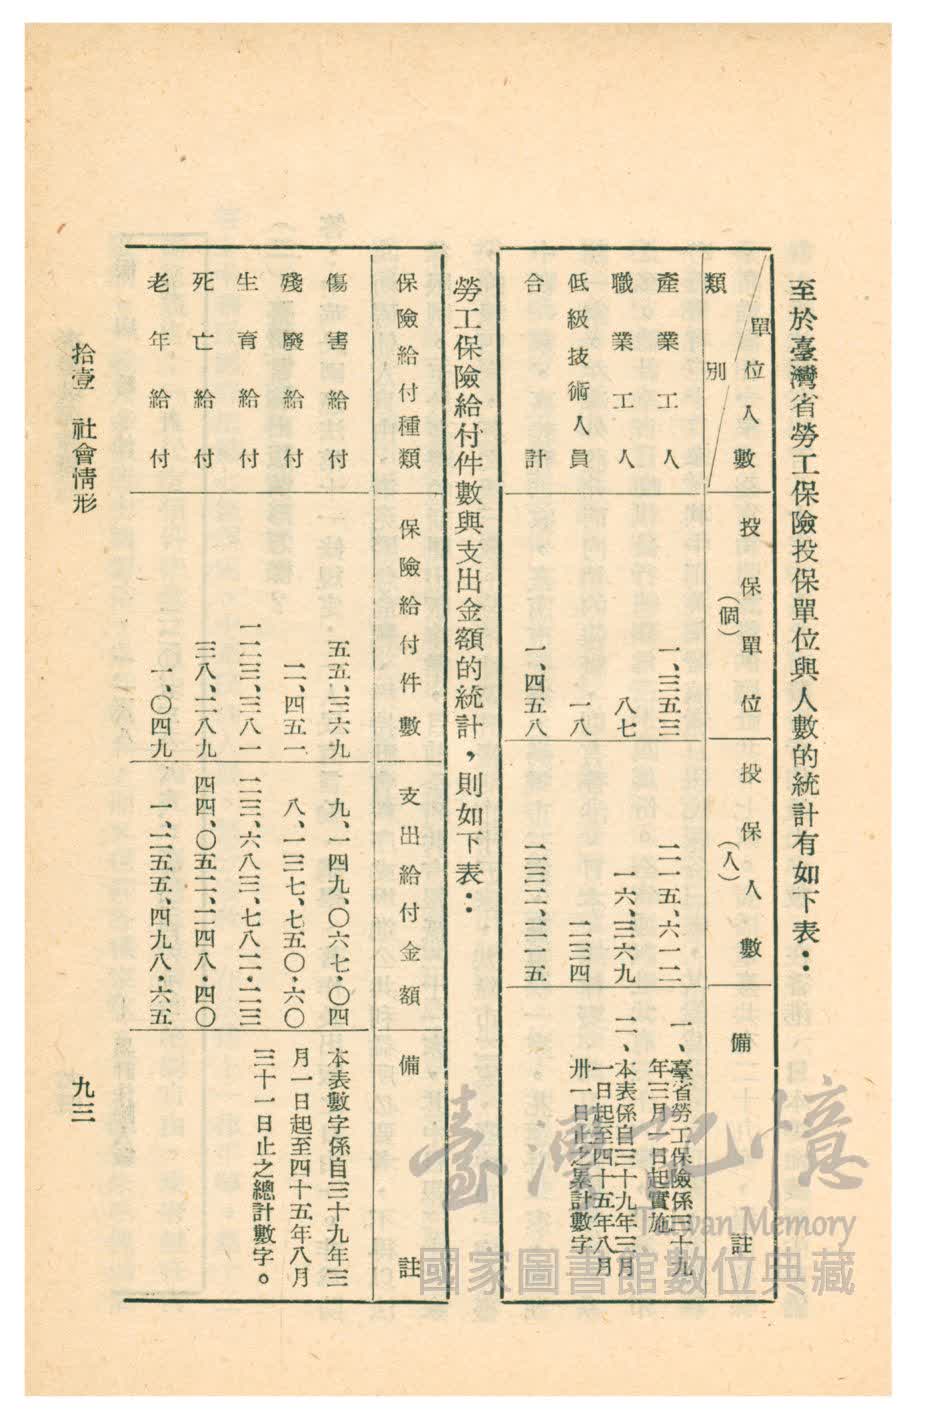 至於臺灣省勞工保險投保單位與人數的統計有如下表：
單位人數
類別
投保單位
（個）
投保人數
（人）
備註
產業工人 一、三五三 二一五、六一二
職業工人 八七 一六、三六九
低級技術人員 一八 二三四
合計 一、四五八 二三二、二一五
一、臺省勞工保險係三十九
年三月一日起實施
二、本表係自三十九年三月
一日起至四十五年八月
卅一日止之累計數字
勞工保險給付件數與支出金額的統計，則如下表：
保險給付種類 保險給付件數 支出給付金額 備註
傷害給付 五五、三六九 九、一四九、〇六七·〇四
殘廢給付 二、四五一 八、一三七、七五〇·六〇
生育給付 一二三、三八一 二三、六八三、七八二·二三
死亡給付 三八、二八九 四四、〇五二、二四八·四〇
老年給付 一、〇四九 一、二五五、四九八·六五
本表數字係自三十九年三
月一日起至四十五年八月
三十一日止之總計數字。
拾壹 社會情形
九三
臺灣記憶
Taiwan Memory
國家圖書館數位典藏